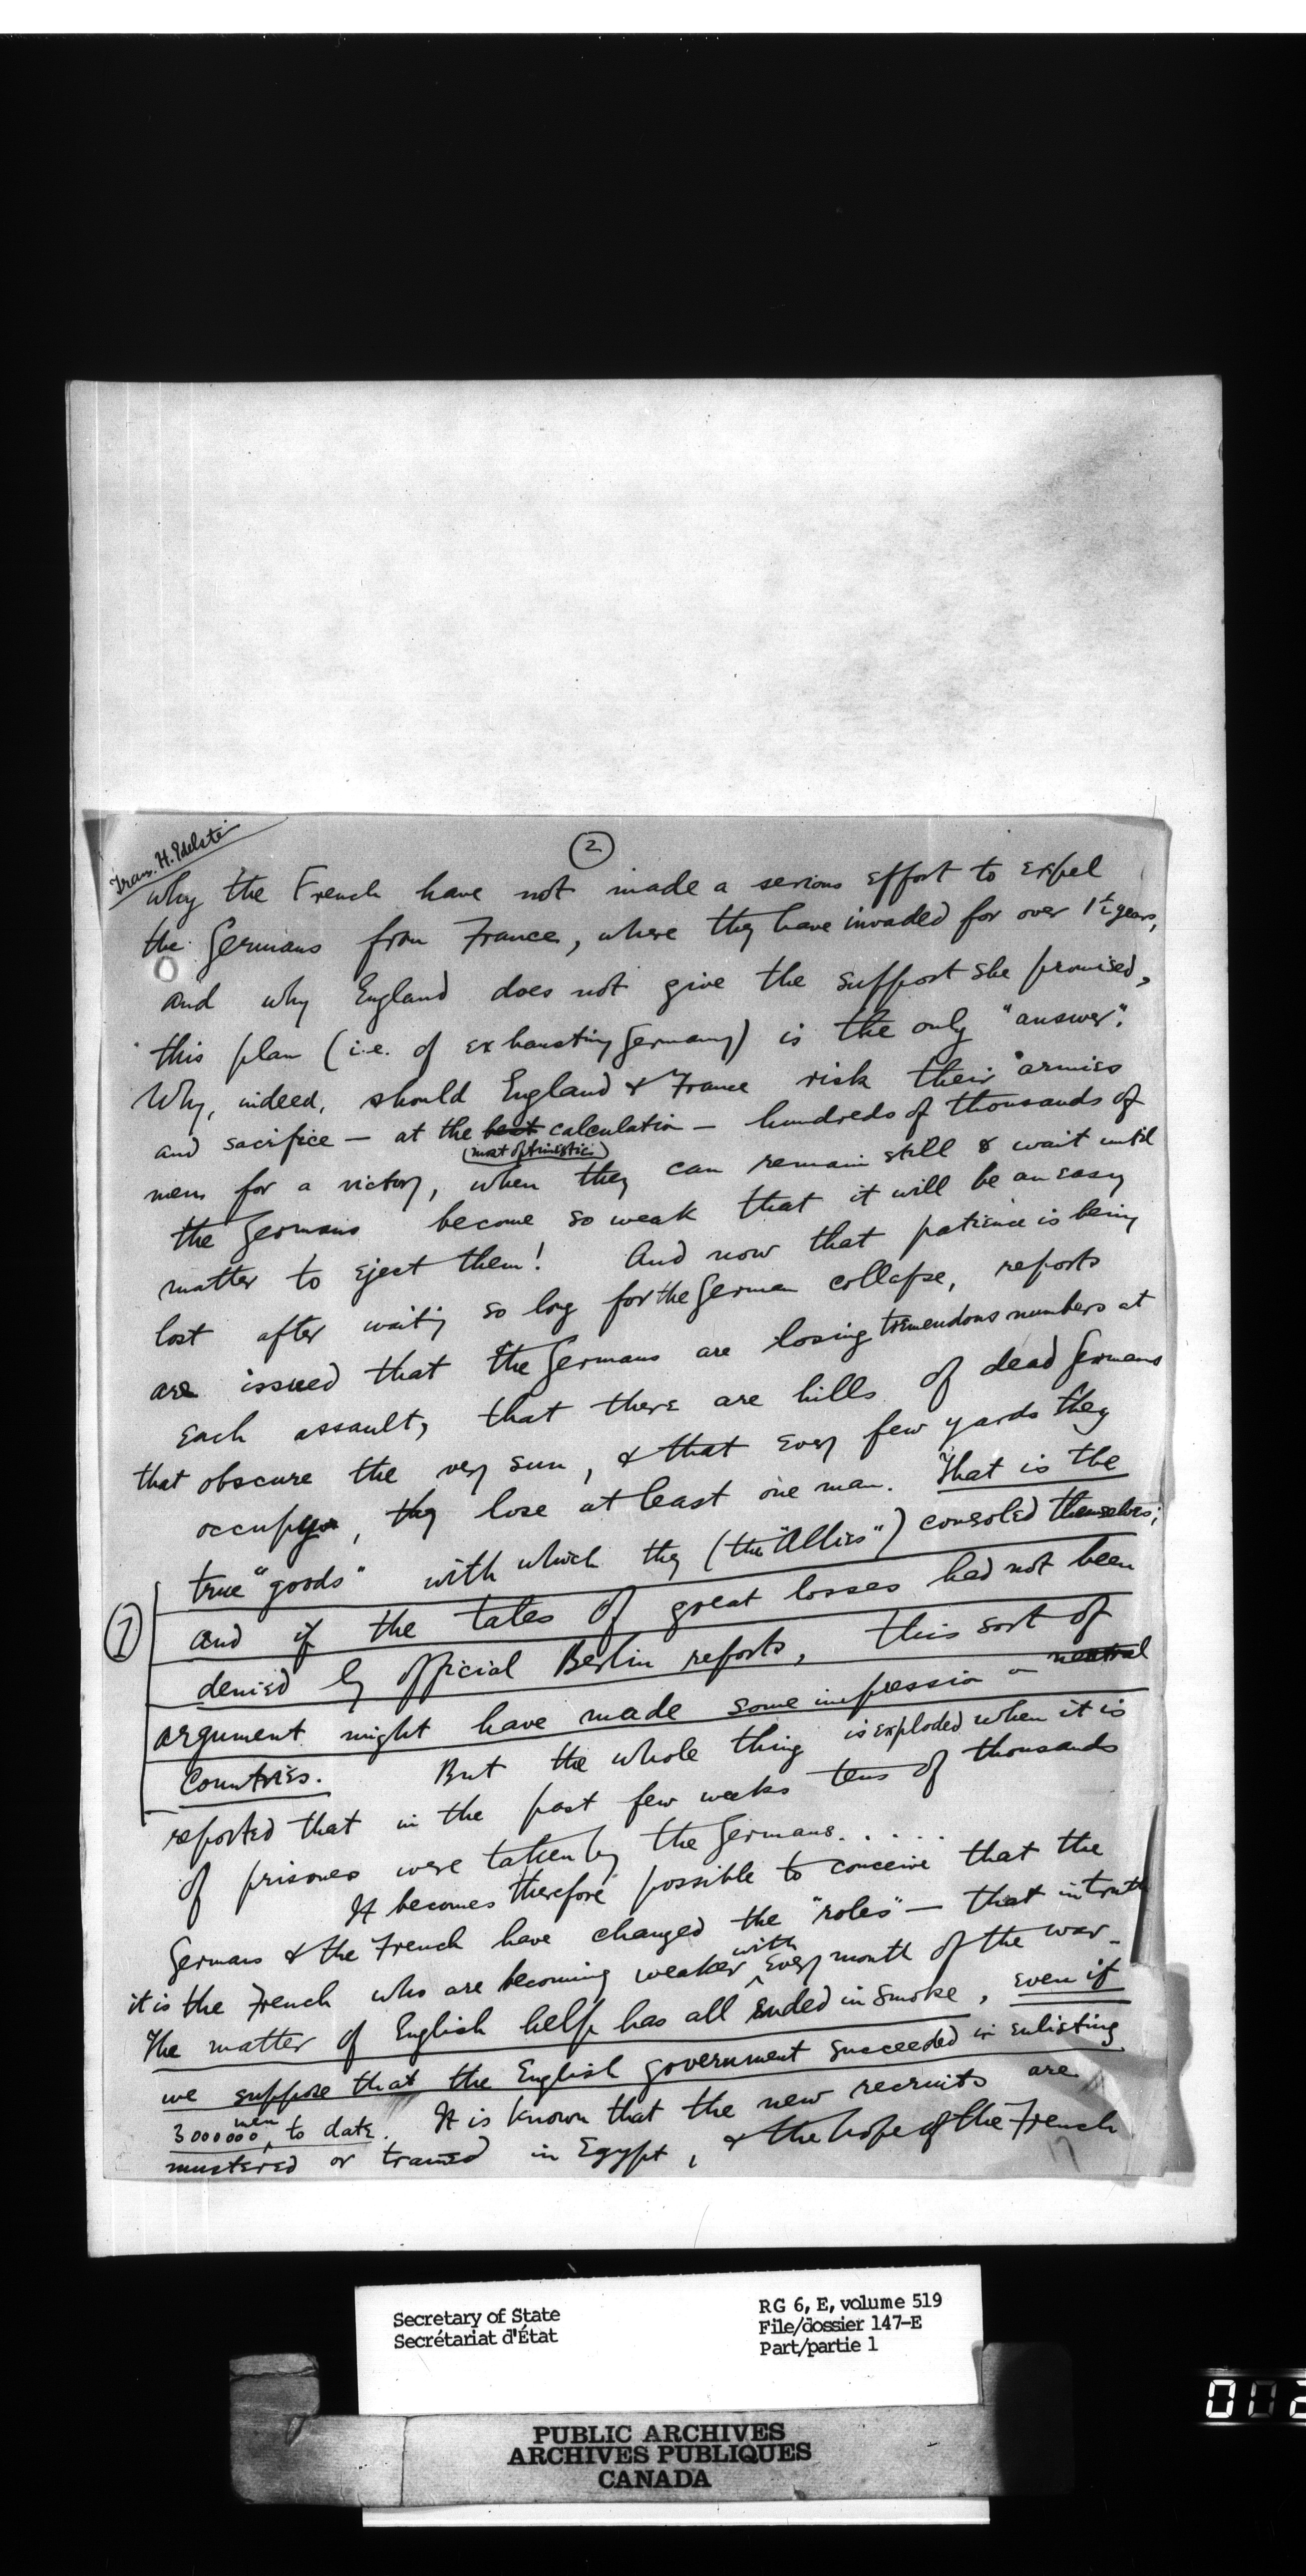 Trans. H. Edelste
2
why the French have not made a serious effort to expel
the Germans from France, where they have invaded for over 1½ years,
and why England does not give the support she promised,
this plan (i.e. of exhausting Germany) is the only "answer".
Why, indeed, should England & France risk their armies
and sacrifice — at the best calculation — hundreds of thousands of
(most optimistic)
men for a victory, when they can remain still & wait until
the Germans become so weak that it will be an easy
matter to eject them! And now that patience is being
lost after waiting so long for the German collapse, reports
are issued that the Germans are losing tremendous numbers at
each assault, that there are hills of dead Germans
that obscure the very sun, & that every few yards they
occupy, they lose at least one man. That is the
true "goods" with which they (the "Allies") consoled themselves;
1
and if the tales of great losses had not been
denied by official Berlin reports, this sort of
argument might have made some impression on neutral
countries. But the whole thing is exploded when it is
reported that in the past few weeks tens of thousands
of prisoners were taken by the Germans.....
It becomes therefore possible to conceive that the
Germans & the French have changed the "roles" — that in truth
it is the French who are becoming weaker with every month of the war.
The matter of English help has all ended in smoke, even if
we suppose that the English government succeeded in enlisting
3000000 men to date. It is known that the new recruits are
mustered or trained in Egypt, & the hope of the French
17
Secretary of State
Secrétariat d'État
RG 6, E, volume 519
File/dossier 147-E
Part/partie 1
PUBLIC ARCHIVES
ARCHIVES PUBLIQUES
CANADA
002